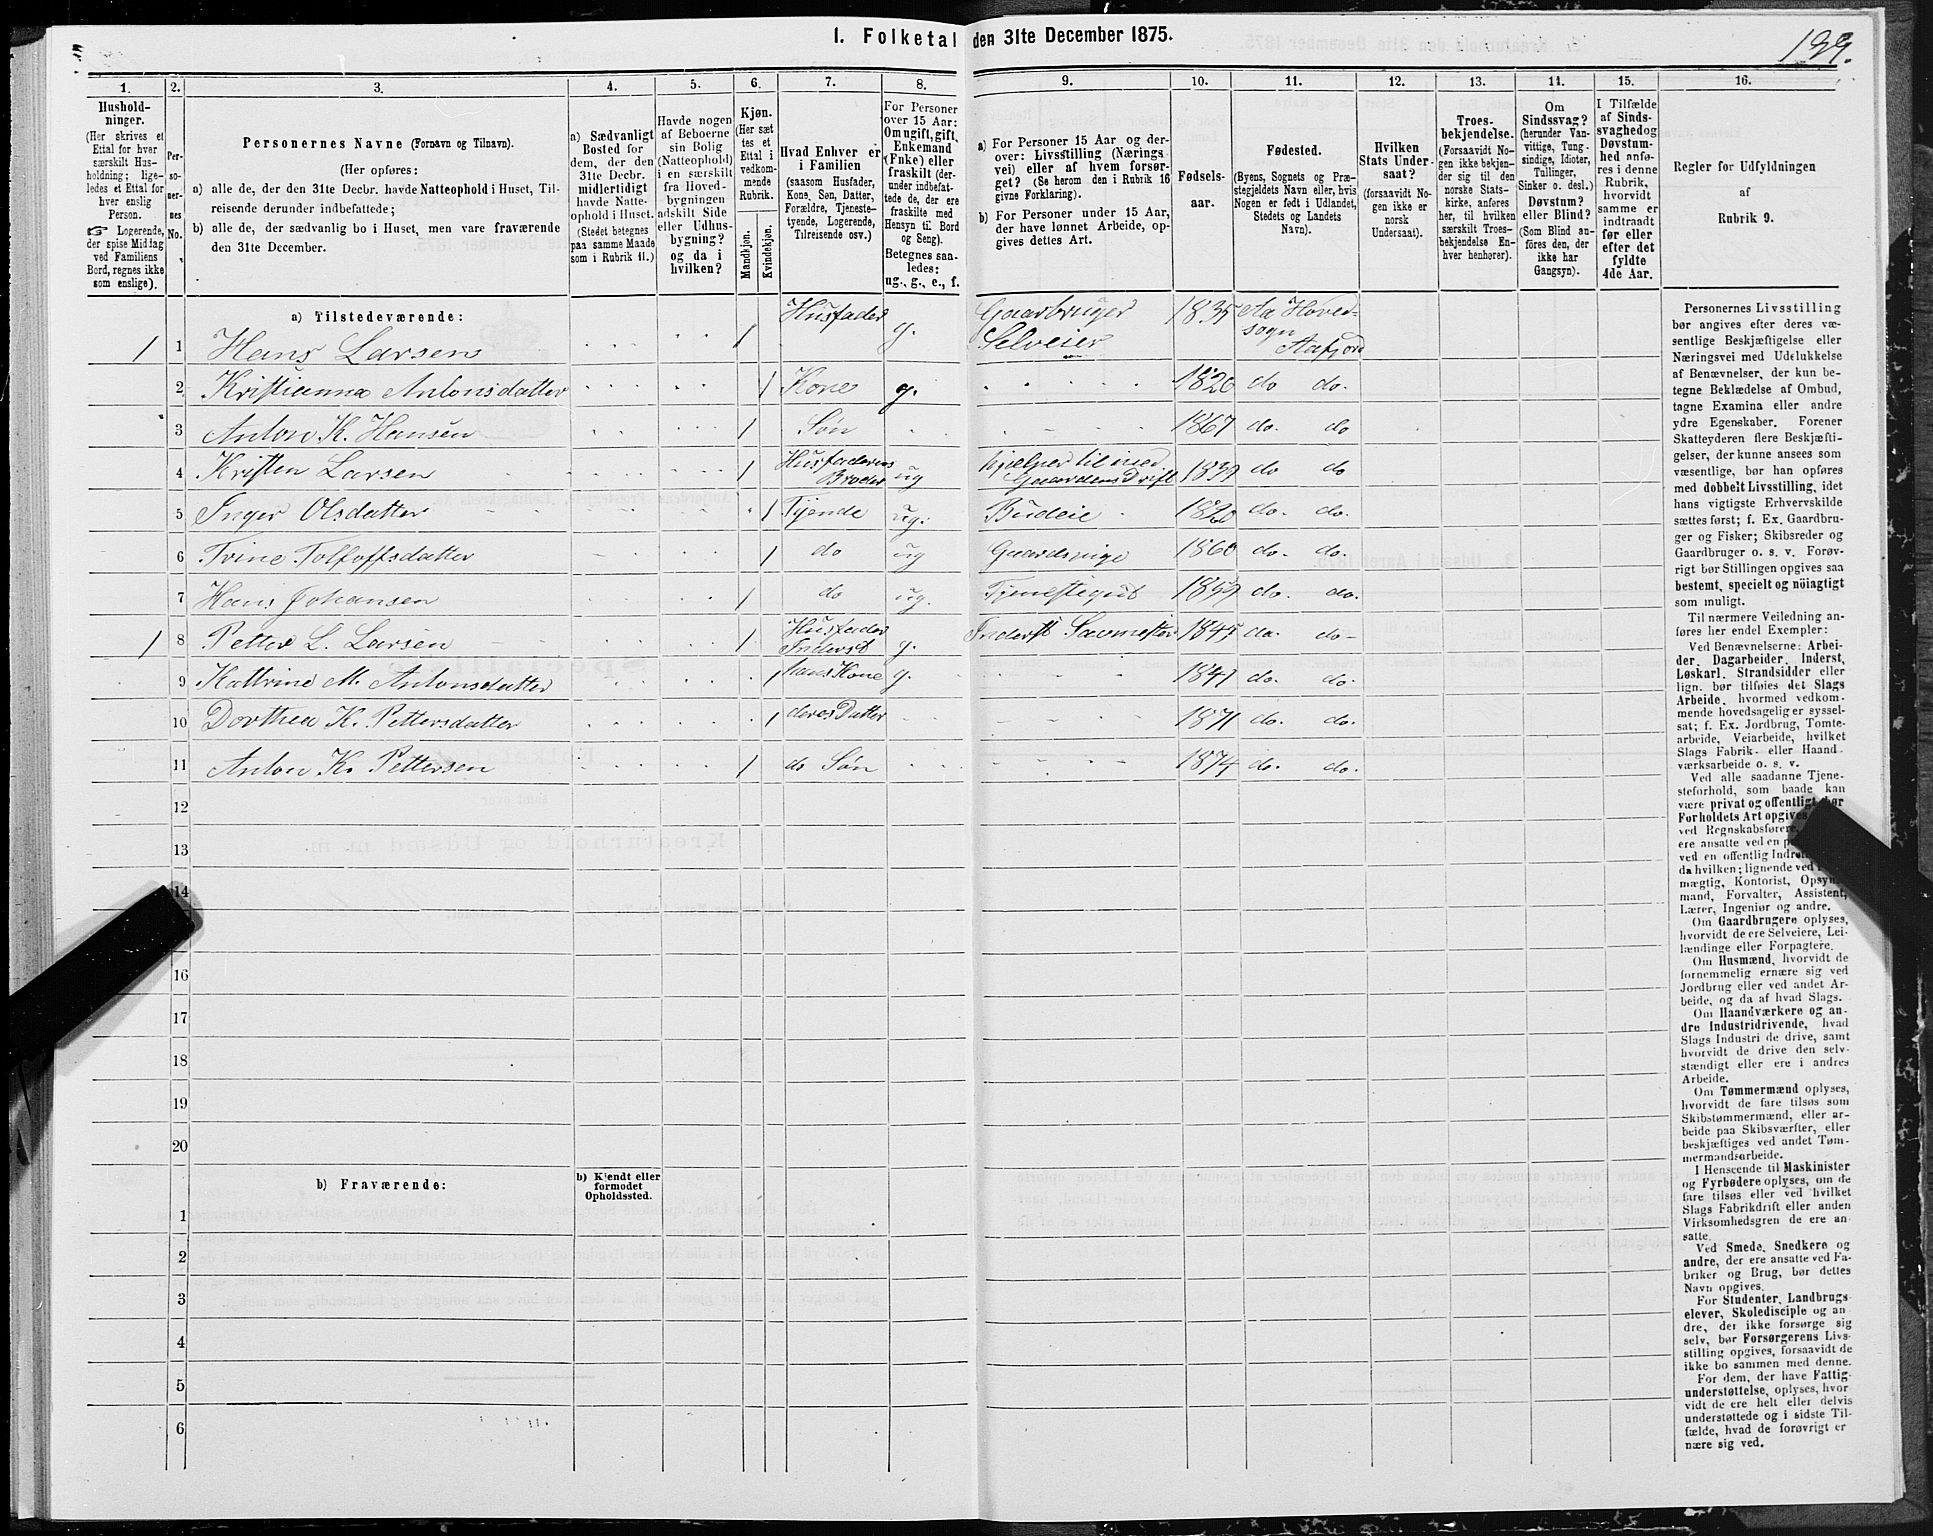 I. Folketal den 31te December 1875.
139.
1.
Hushold-
ninger.
(Her skrives et
Ettal for hver
særskilt Hus-
holdning; lige-
ledes et Ettal for
hver enslig
Person.
☞ Logerende,
der spise Middag
ved Familiens
Bord, regnes ikke
som enslige).
2.
Per-
so-
ner-
nes
No.
3.
Personernes Navne (Fornavn og Tilnavn).
(Her opføres:
a) alle de, der den 31te Decbr. havde Natteophold i Huset, Til-
reisende derunder indbefattede;
b) alle de, der sædvanlig bo i Huset, men vare fraværende
den 31te December.
4.
a) Sædvanligt
Bosted for
dem, der den
31te Decbr.
midlertidigt
havde Natte-
ophold i Huset.
(Stedet betegnes
paa samme Maade
som i Rubrik 11.)
5.
Havde nogen
af Beboerne
sin Bolig
(Natteophold)
i en særskilt
fra Hoved-
bygningen
adskilt Side
eller Udhus-
bygning?
og da i
hvilken?
6.
Kjøn.
(Her sæt
tes et
Ettal i
vedkom-
mende
Rubrik.
Mandkjøn.
Kvindekjøn.
7.
Hvad Enhver er
i Familien
(saasom Husfader,
Kone, Søn, Datter,
Forældre, Tjeneste-
tyende, Logerende,
Tilreisende osv.)
8.
For Personer
over 15 Aar:
Om ugift, gift,
Enkemand
(Enke) eller
fraskilt (der-
under indbefat-
tede de, der ere
fraskilte med
Hensyn til Bord
og Seng).
Betegnes saa-
ledes:
ug., g., e., f.
9.
a) For Personer 15 Aar og der-
over: Livsstilling (Nærings-
vei) eller af hvem forsør-
get? (Se herom den i Rubrik 16
givne Forklaring).
b) For Personer under 15 Aar,
der have lønnet Arbeide, op-
gives dettes Art.
10.
Fødsels-
aar.
11.
Fødested.
(Byens, Sognets og Præ-
stegjeldets Navn eller, hvis
Nogen er født i Udlandet,
Stedets og Landets
Navn).
12.
Hvilken
Stats Under-
saat?
(forsaavidt No-
gen ikke er
norsk
Undersaat).
13.
Troes-
bekjendelse.
(Forsaavidt No-
gen ikke bekjen-
der sig til den
norske Stats-
kirke, anføres
her, til hvilken
særskilt Troes-
bekjendelse En-
hver henhører).
14.
Om
Sindssvag?
(herunder Van-
vittige, Tung-
sindige, Idioter,
Tullinger,
Sinker o. desl.)
Døvstum?
eller Blind?
(Som Blind an-
føres den, der
ikke har
Gangsyn).
15.
I Tilfælde
af Sinds-
svaghed og
Døvstum-
hed anfø-
res i denne
Rubrik,
hvorvidt
samme er
indtraadt
før eller
efter det
fyldte
4de Aar.
16.
Regler for Udfyldningen
af
Rubrik 9.
a) Tilstedeværende:
1 1 Hans Larsen 1 Husfader g. Gaardbruger Selveier 1835 Aa Hoved-
sogn
Aafjord
2 Kristianna Antonsdatter 1 Kone g. 1820 do do.
3 Anton K. Hansen 1 Søn 1867 do. do
4 Kristen Larsen 1 Husfaderens Broder ug Hjelper til med Gaardens Drift 1839 do do
5 Inger Olsdatter 1 Tjende ug. Budeie 1820 do. do.
6 Trine Tolfoffsdatter 1 do ug Gaardspige 1860 do. do.
7 Hans Johansen 1 do ug. Tjenestegut 1859 do. do.
1 8 Petter L. Larsen 1 Husfader Inderst g. Inderst Savmester 1845 do. do-
9 Kattrine M. Antonsdatter 1 hans Kone g. 1847 do. do.
10 Dorthea K. Pettersdatter 1 deres Datter 1871 do. do.
11 Anton K. Pettersen 1 do Søn 1874 do. do.
12
13
14
16
17
18
19
20
b) Fraværende:
b) Kjendt eller
formodet
Opholdssted.
1
2
3
4
5
6
Personernes Livsstilling
bør angives efter deres væ-
sentlige Beskjæftigelse eller
Næringsvei med Udelukkelse
af Benævnelser, der kun be-
tegne Beklædelse af Ombud,
tagne Examina eller andre
ydre Egenskaber. Forener
Skatteyderen flere Beskjæfti-
gelser, der kunne ansees som
væsentlige, bør han opføres
med dobbelt Livsstilling, idet
hans vigtigste Erhvervskilde
sættes først; f. Ex. Gaardbru-
ger og Fisker; Skibsreder og
Gaardbruger o. s. v. Forøv-
rigt bør Stillingen opgives saa
bestemt, specielt og nöiagtigt
som muligt.
Til nærmere Veiledning an-
føres her endel Exempler:
Ved Benævnelserne: Arbei-
der, Dagarbeider, Inderst,
Løskarl, Strandsidder eller
lign. bør tilføies det Slags
Arbeide, hvormed vedkom-
mende hovedsagelig er syssel-
sat; f. Ex. Jordbrug, Tomte-
arbeide, Veiarbeide, hvilket
Slags Fabrik- eller Haand-
værksarbeide o. s. v.
Ved alle saadanne Tjene-
steforhold, som baade kan
være privat og offentligt, bør
Forholdets Art opgives
ved Regnskabsførere,
ere ansatte ved en
ved en offentlig
da hvilken; lignende ved
mægtig, Kontorist, Opsyns-
mand, Forvalter, Assistent,
Lærer, Ingeniør og andre.
Om Gaardbrugere oplyses,
hvorvidt de ere Selveiere, Lei-
lændinge eller Forpagtere.
Om Husmænd, hvorvidt de
fornemmelig ernære sig ved
Jordbrug eller ved andet Ar-
beide, og da af hvad Slags.
Om Haandværkere og an-
dre Industridrivende, hvad
Slags Industri de drive, samt
hvorvidt de drive den selv-
stændigt eller ere i andres
Arbeide.
Om Tømmermænd oplyses,
hvorvidt de fare tilsøs som
Skibstømmermænd, eller ar-
beide paa Skibsværfter, eller
beskjæftiges ved andet Tøm-
mermandsarbeide.
I Henseende til Maskinister
og Fyrbødere oplyses, om de
fare tilsøs eller ved hvilket
Slags Fabrikdrift eller anden
Virksomhedsgren de ere an-
satte.
Ved Smede, Snedkere og
andre, der ere ansatte ved Fa-
briker og Brug, bør dettes
Navn opgives.
For Studenter, Landbrugs-
elever, Skoledisciple og an
dre, der ikke forsørge sig
selv, bør Forsørgerens Livs-
stilling opgives, forsaavidt de
ikke bo sammen med denne.
For dem, der have Fattig-
understøttelse, oplyses, hvor-
vidt de ere helt eller delvis
understøttede og i sidste Til-
fælde, hvad de forøvrigt er-
nære sig ved.